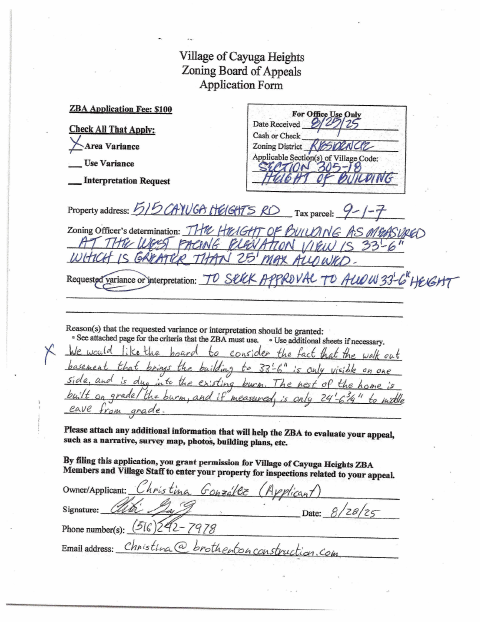 Village of Cayuga Heights
Zoning Board of Appeals
Application Form
ZBA Application Fee: $100
Check All That Apply:
X Area Variance
___ Use Variance
___ Interpretation Request
For Office Use Only
Date Received 8/28/25
Cash or Check
Zoning District RESIDENCE
Applicable Section(s) of Village Code:
SECTION 305-18
HEIGHT OF BUILDING
Property address: 515 CAYUGA HEIGHTS RD Tax parcel: 9-1-7
Zoning Officer's determination: THE HEIGHT OF BUILDING AS MEASURED
AT THE WEST FACING ELEVATION VIEW IS 33'-6"
WHICH IS GREATER THAN 25' MAX ALLOWED.
Requested variance or interpretation: TO SEEK APPROVAL TO ALLOW 33'-6" HEIGHT
Reason(s) that the requested variance or interpretation should be granted:
* See attached page for the criteria that the ZBA must use. * Use additional sheets if necessary.
X We would like the board to consider the fact that the walk out
basement that brings the building to 33'-6" is only visible on one
side, and is dug into the existing burm. The rest of the home is
built on grade/the burm, and if measured, is only 24'-6 3/4" to middle
eave from grade.
Please attach any additional information that will help the ZBA to evaluate your appeal,
such as a narrative, survey map, photos, building plans, etc.
By filing this application, you grant permission for Village of Cayuga Heights ZBA
Members and Village Staff to enter your property for inspections related to your appeal.
Owner/Applicant: Christina Gonzalez (Applicant)
Signature: Date: 8/28/25
Phone number(s): (516) 242-7978
Email address: Christina@brothertonconstruction.com